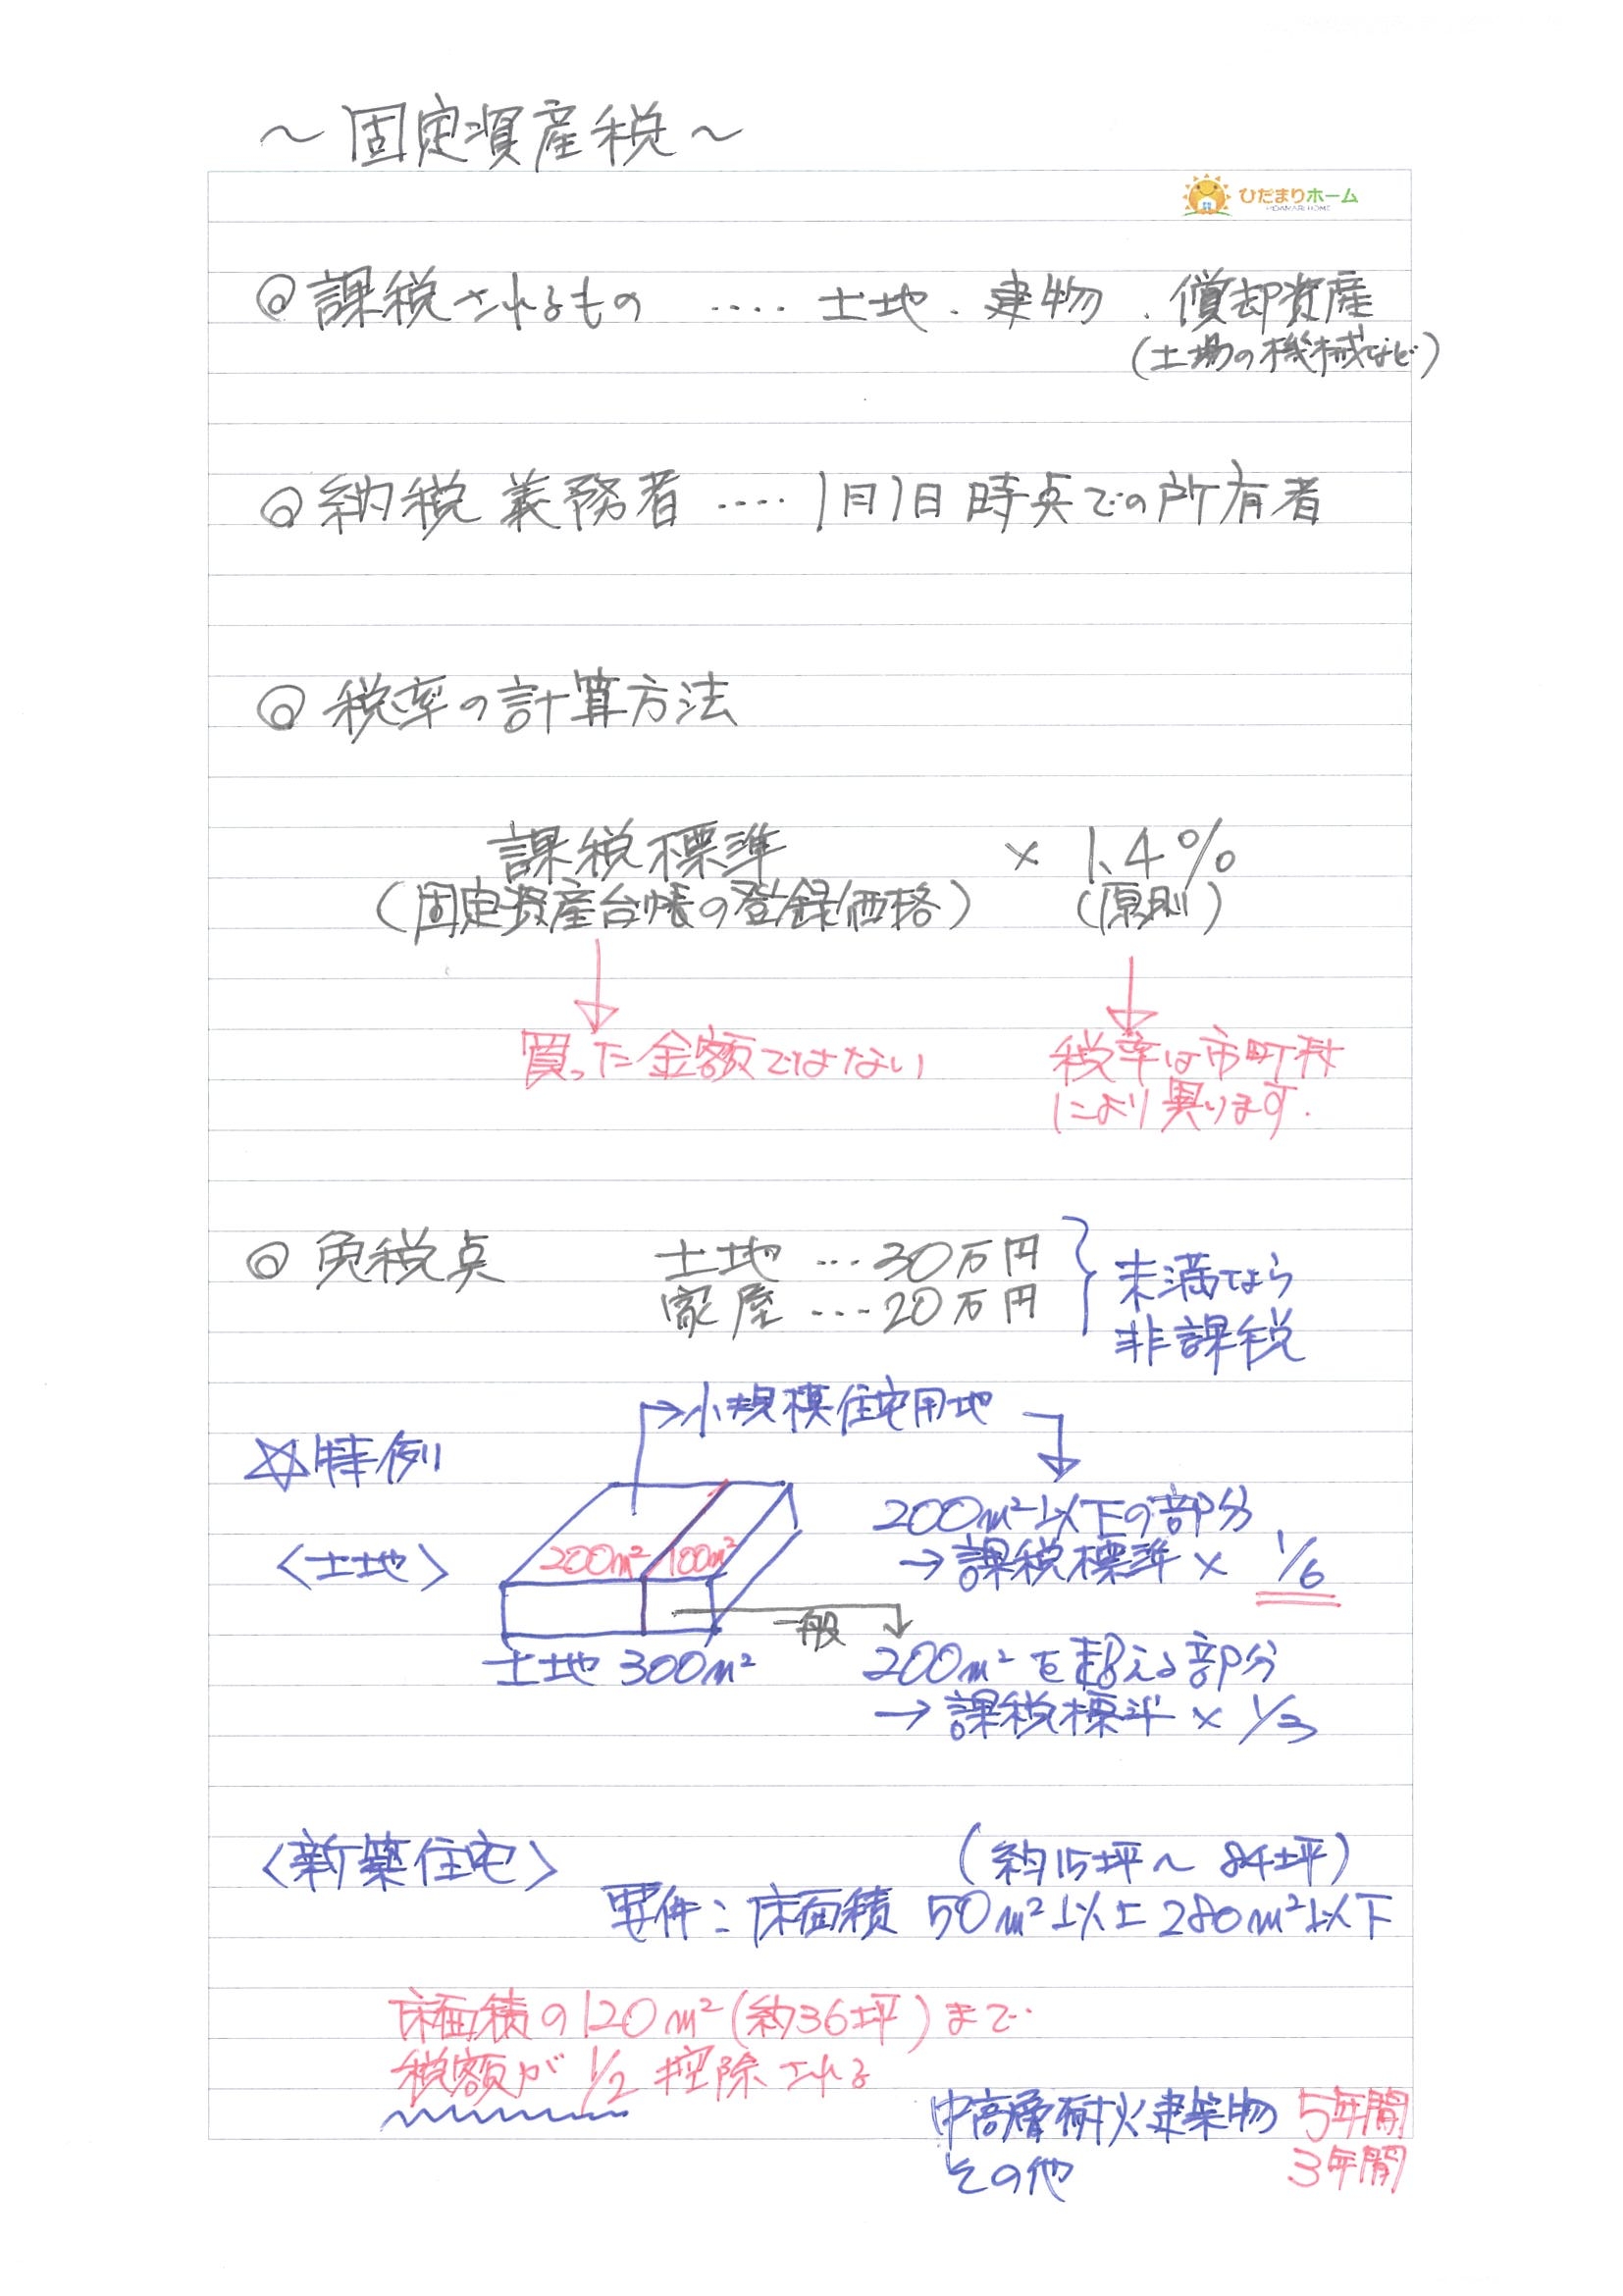 ～固定資産税～
ひだまりホーム
HIDAMARI HOME
◎課税されるもの ‥‥ 土地・建物・償却資産
(土場の機械など)
◎納税義務者 ‥‥ 1月1日時点での所有者
◎税率の計算方法
課税標準 × 1.4%
(固定資産台帳の登録価格) (原則)
買った金額ではない
税率は市町村
により異ります.
◎免税点 土地 … 30万円
家屋 … 20万円
未満なら
非課税
→小規模住宅用地
☆特例
200m²以下の部分
<土地> 200m² 100m² →課税標準 × 1/6
一般
土地 300m² 200m²を超える部分
→課税標準 × 1/3
<新築住宅> (約15坪～84坪)
要件:床面積 50m²以上280m²以下
床面積の120m²(約36坪)まで
税額が1/2控除される
中高層耐火建築物 5年間
その他 3年間